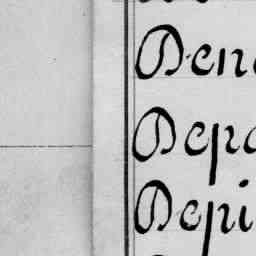 Den
Depa
Depi